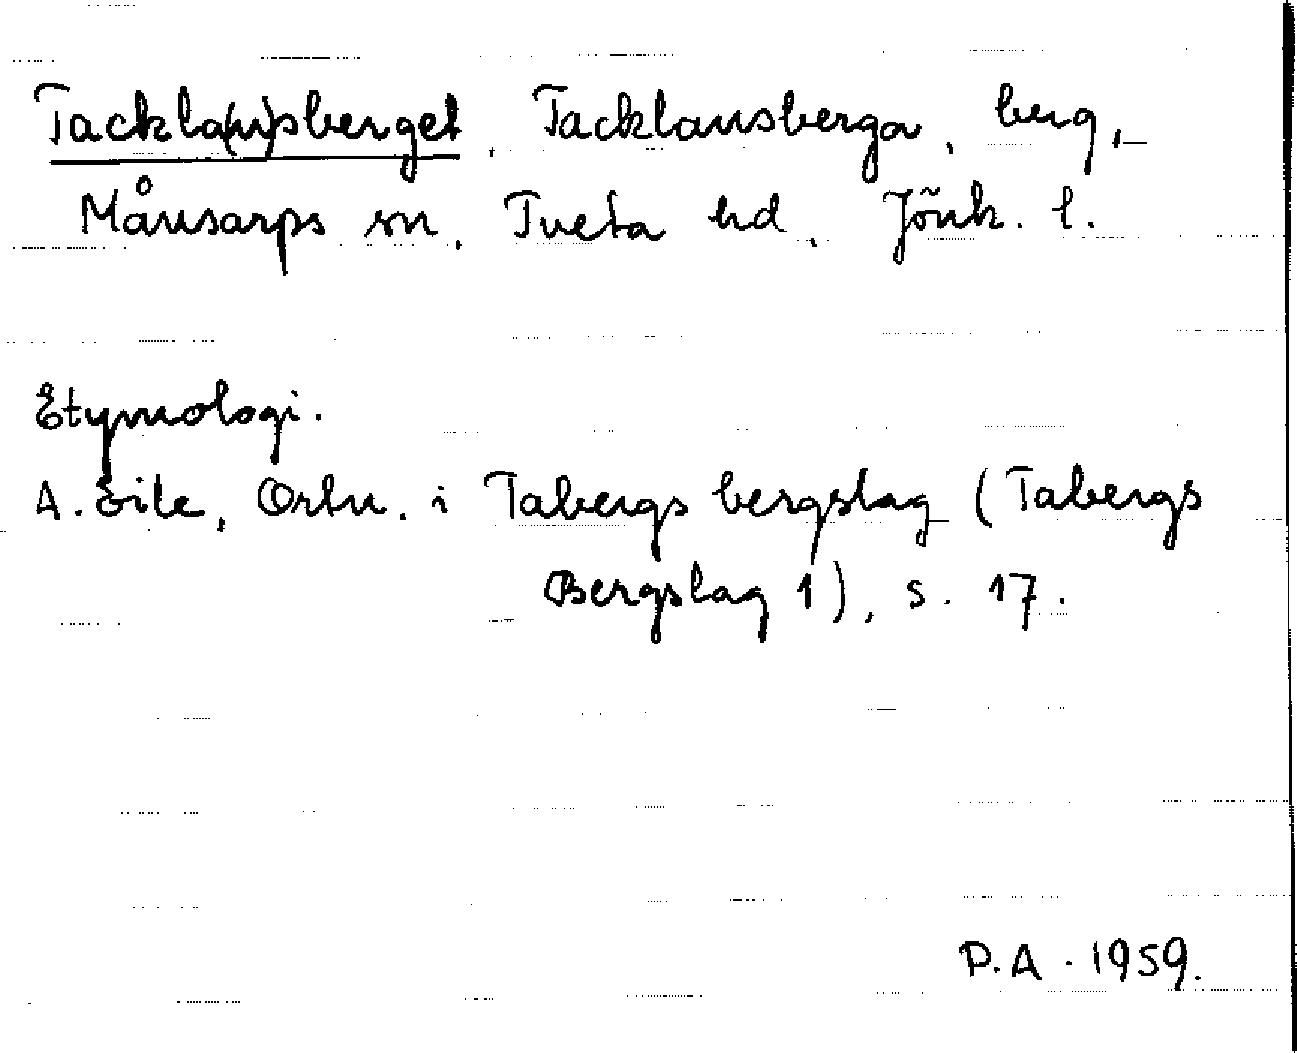 Tackla(n)sberget, Tacklansberga, berg,
Månsarps sn, Tveta hd, Jönk. l.
Etymologi.
A. Eile, Ortn. i Tabergs bergslag (Tabergs
Bergslag 1), s. 17.
P.A. 1959.